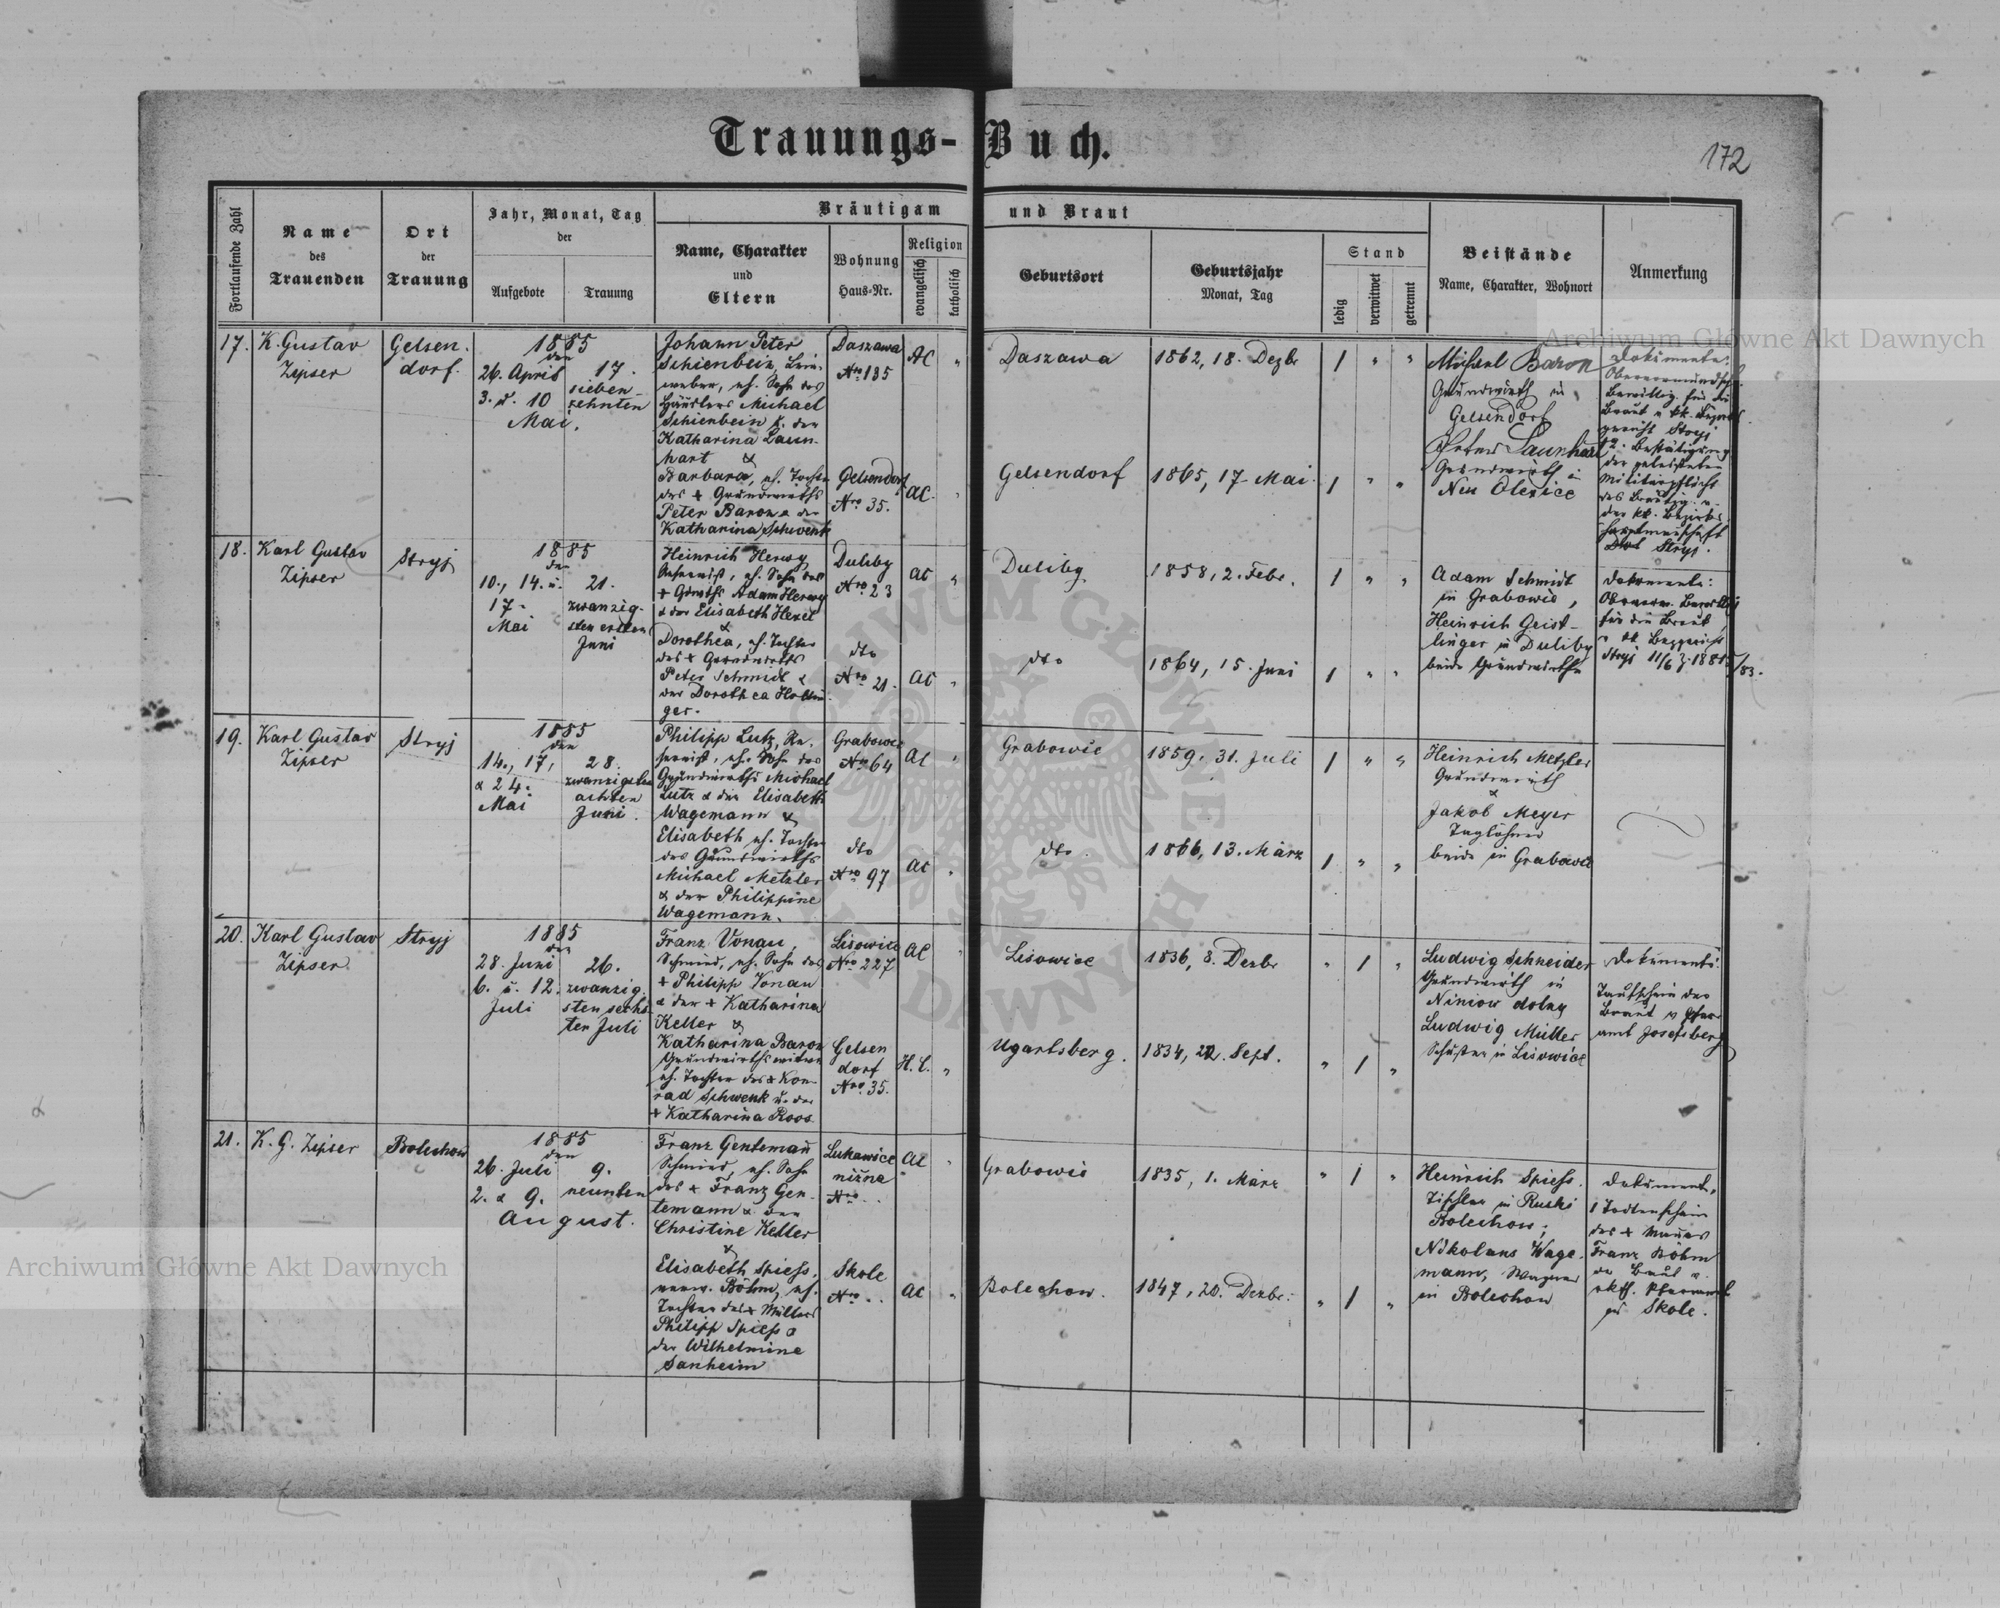 Trauungs-Buch.
172
Fortlaufende Zahl
Name
des
Trauenden
Ort
der
Trauung
Jahr, Monat, Tag
der
Aufgebote
Trauung
Bräutigam und Braut
Name, Charakter
und
Eltern
Wohnung
Haus-Nr.
Religion
evangelisch
katholisch
Geburtsort
Geburtsjahr
Monat, Tag
Stand
ledig
verwitwet
getrennt
Beistände
Name, Charakter, Wohnort
Anmerkung
17.
K. Gustav
Zipser
Gelsen-
dorf.
1885
den
26. April
3. u. 10
Mai.
17.
sieben
zehnten
Johann Peter
Schienbein, Lein-
weber, eh. Sohn des
Händlers Michael
Schienbein u. der
Katharina Laun-
hart &
Barbara, eh. Tochter
des + Grundwirths
Peter Baron & der
Katharina Schwenk
Daszawa
Nro 135
Gelsendorf
Nro 35.
AC "
AC. "
Daszawa
Gelsendorf
1862, 18. Dezbr
1865, 17. Mai.
1 " "
1 " "
Michael Baron
Grundwirth in
Gelsendorf
Peter Launhart
Grundwirth in
Neu Olexice
Dokumente:
Obervormundsch.
Bewillig. für die
Braut v. kk. Bezirks
gericht Stryj
2. Bestätigung
der geleisteten
Militärpflicht
des Bräutig. v.
der kk. Bezirks
hauptmannschaft
Stryj.
18.
Karl Gustav
Zipser
Stryj
1885
den
10., 14. u.
17.
Mai
21.
zwanzig-
sten ersten
Juni
Heinrich Herwy
Reservist, eh. Sohn des
+ Grwths Adam Herwy
& der Elisabeth Hexel
&
Dorothea, eh. Tochter
des + Grundwirths
Peter Schmidt &
der Dorothea
ger.
Duliby
Nro 23
dto
Nro 21.
AC "
AC "
Duliby
dto
1858, 2. Febr.
1864, 15. Juni
1 " "
1 " "
Adam Schmidt
in Grabowie,
Heinrich Geist-
linger in Duliby
beide Grundwirthe
Dokumente:
Obervorm. Bewillig
für die Braut
v. kk Bezgericht
Stryj 11/6 Z. 1881
19.
Karl Gustav
Zipser
Stryj
1885
den
14., 17,
& 24.
Mai
28.
zwanzigsten
achten
Juni.
Philipp Lutz, Re-
servist, eh. Sohn des
Grundwirths Michael
Lutz & der Elisabeth
Wagemann &
Elisabeth eh. Tochter
des Grundwirths
Michael Metzler
& der Philippine
Wagemann.
Grabowie
Nro 64
dto
Nro 97
AC "
AC "
Grabowie
dto.
1859, 31. Juli
1866, 13. März
1 " "
1 " "
Heinrich Metzler
Grundwirth
&
Jakob Meyer
Taglöhner
beide in Grabowie
20.
Karl Gustav
Zipser
Stryj
1885
den
28. Juni
6. u. 12.
Juli
26.
zwanzig
sten sechs
ten Juli
Franz Vonau,
Schmied, eh. Sohn des
+ Philipp Vonau
& der + Katharina
Keller &
Katharina Baron
Grundwirthswitwe
eh. Tochter des + Kon-
rad Schwenk u. der
+ Katharina Roos
Lisowice
Nro 227
Gelsen
dorf
Nro 35.
AC "
H. C. "
Lisowice
Ugartsberg.
1836, 8. Dezbr
1834, 22. Sept.
" 1 "
" 1 "
Ludwig Schneider
Grundwirth in
Niniow dolny
Ludwig Müller
Schuster in Lisowice
Dokumente:
Taufschein der
Braut v. Pfarr
amt Josefsberg
21.
K. G. Zipser
Bolechow
1885
den
26. Juli
2. & 9.
August.
9.
neunten
Franz Gentemañ
Schmied, eh. Sohn
des + Franz Gen-
temann & der
Christine Keller
&
Elisabeth Spiess,
verw. Böhm, eh.
Tochter des + Müllers
Philipp Spiess &
der Wilhelmine
Sanheim
Lukawice
nižna
Nro . .
Skole
Nro . .
AC "
AC "
Grabowie
Bolechow.
1835, 1. März
1847, 20. Dezbr.
" 1 "
" 1 "
Heinrich Spiess.
Tischler in Ruski
Bolechow;
Nikolaus Wage-
mann, Wagner
in Bolechow
Dokument,
1 Todtenschein
des + Manes
Franz Böhm
der Braut v.
rkth. Pfarramt
zu Skole.
Archiwum Główne Akt Dawnych
Archiwum Główne Akt Dawnych
ARCHIWUM GŁÓWNE AKT DAWNYCH